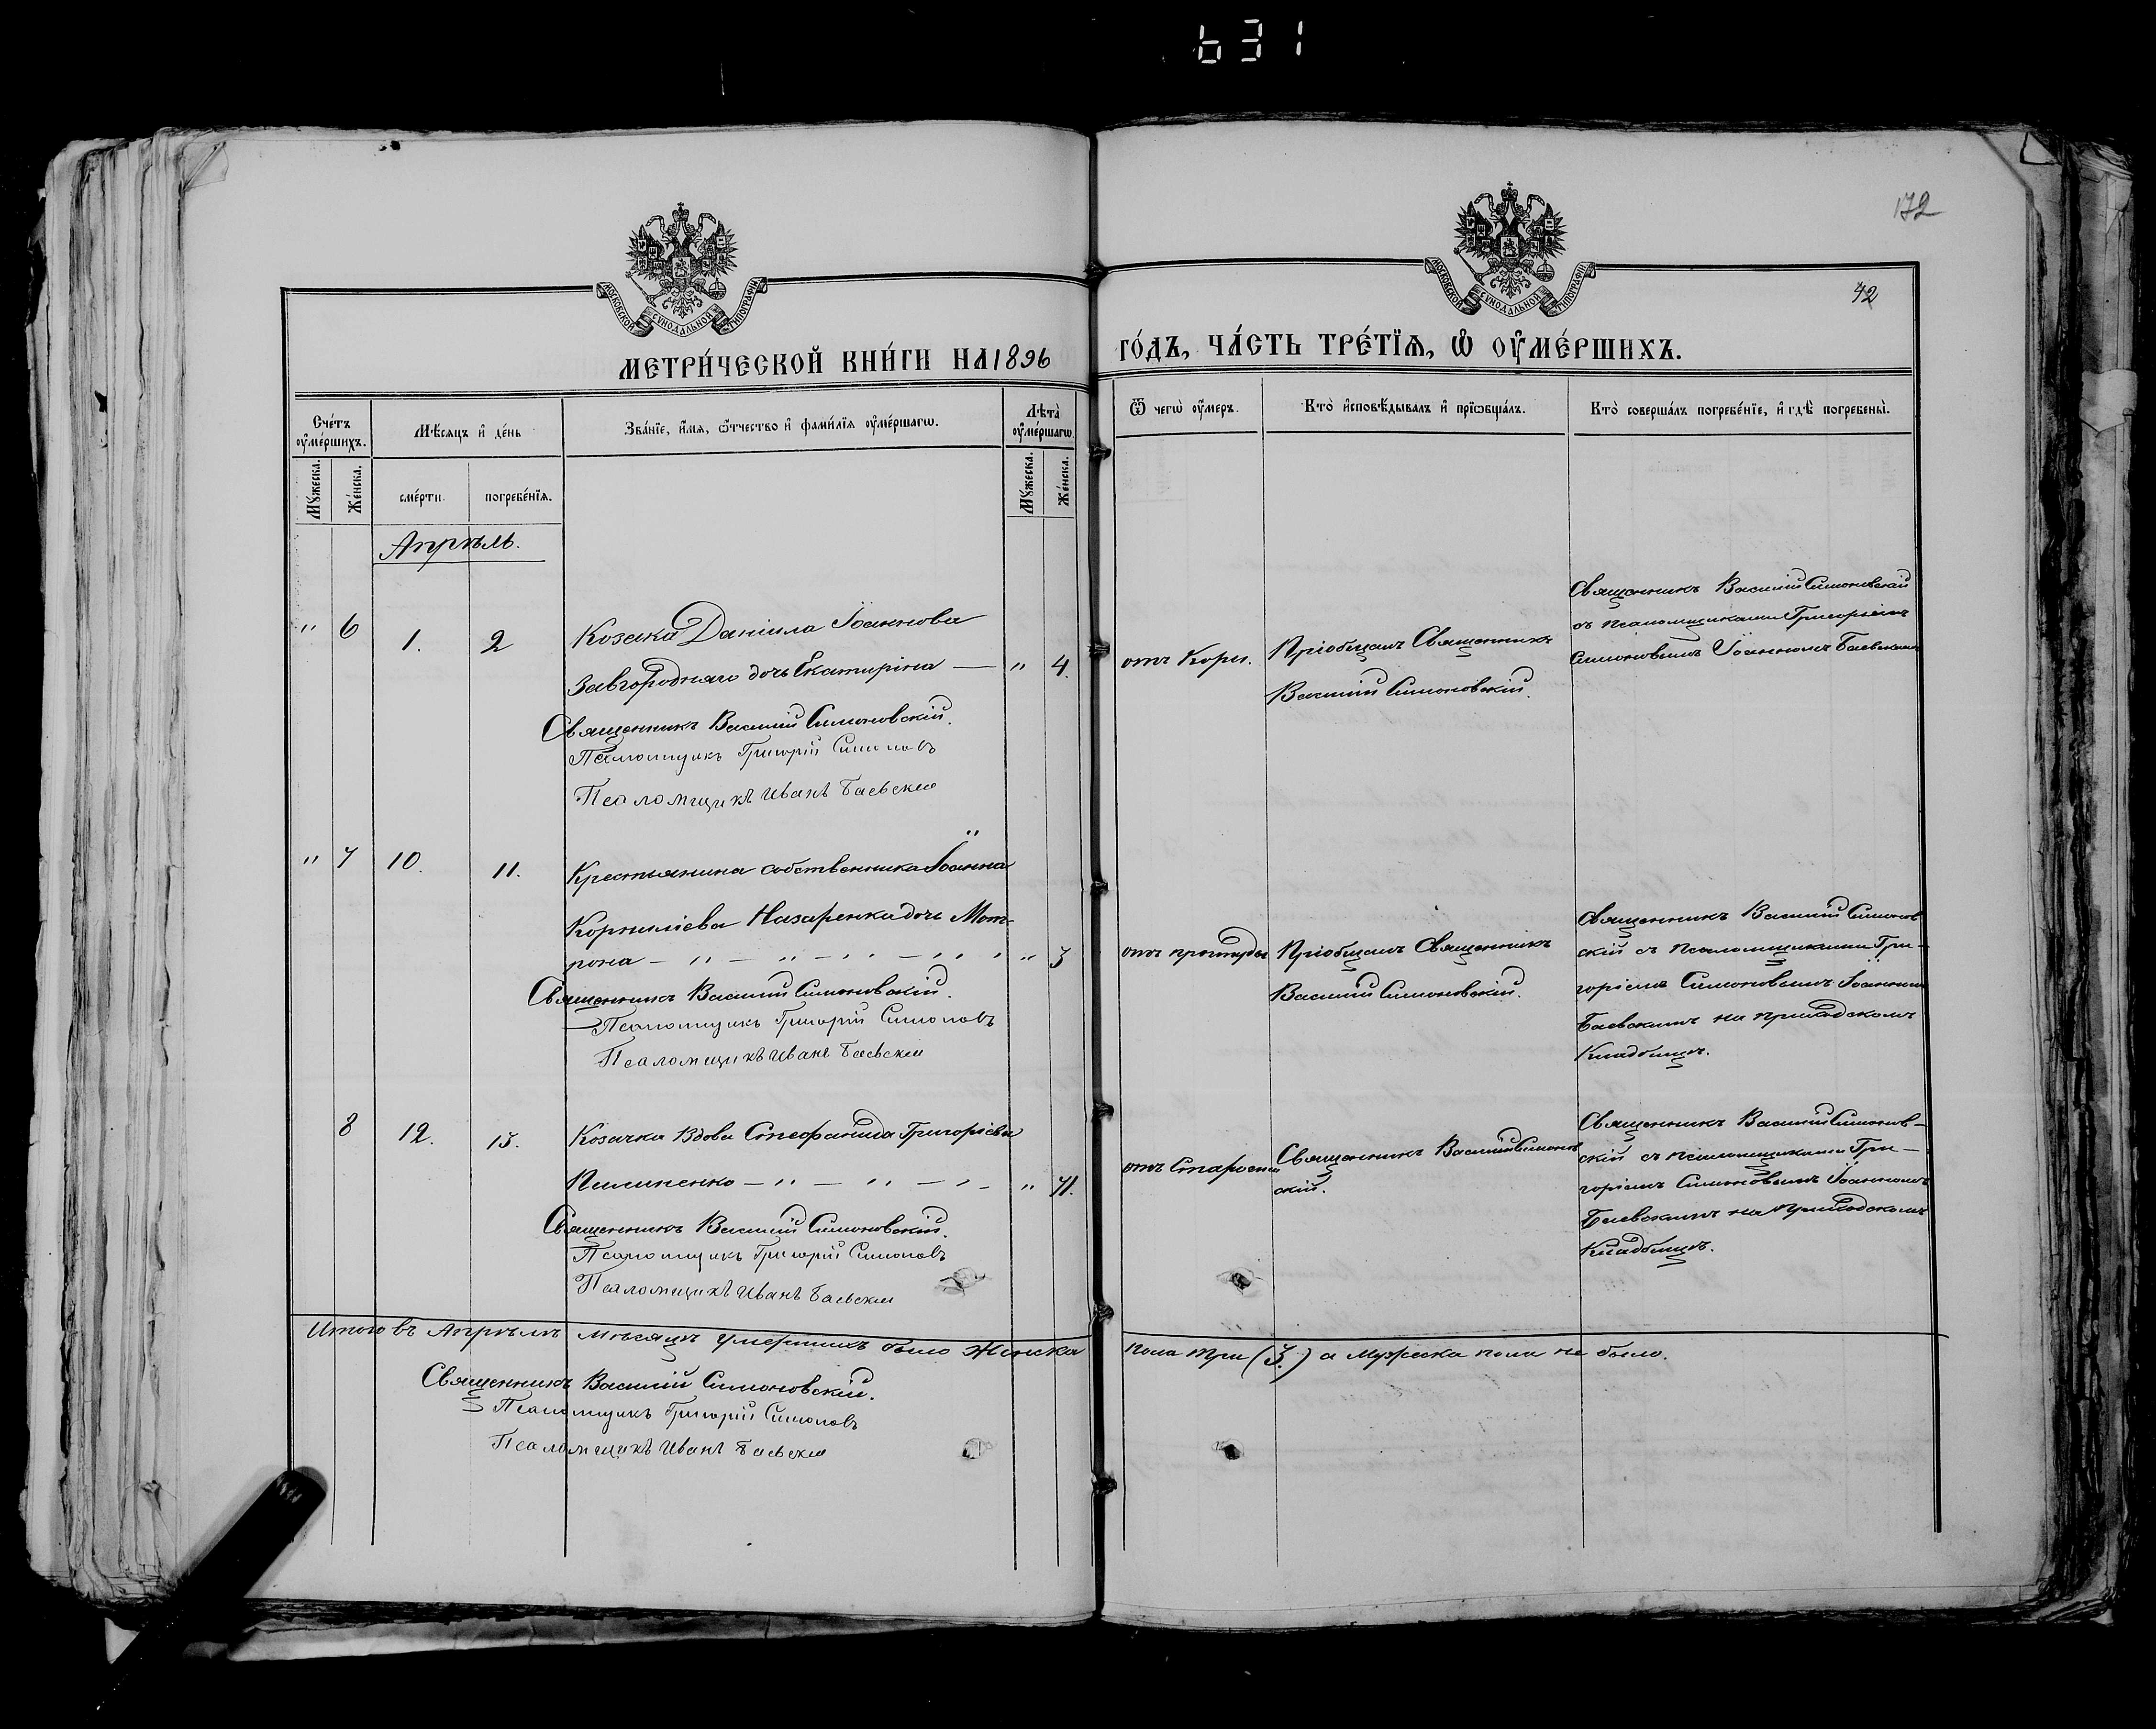 631
172
42
МОСКОВСКОЙ СѴНОДАЛЬНОЙ ТИПОГРАФІИ
МОСКОВСКОЙ СѴНОДАЛЬНОЙ ТИПОГРАФІИ
МЕТРИ́ЧЕСКОЙ КНИ́ГИ НА 1896
ГО́ДЪ, ЧА́СТЬ ТРЕ́ТЇѦ, Ѡ ОУ҆МЕ́РШИХЪ.
Сче́тъ оу҆ме́ршихъ.
Мѣ́сяцъ и҆ де́нь
Зва́нїе, и҆́мя, ѻ҆́тчество и҆ фами́лїя оу҆ме́ршагѡ.
Лѣта̀ оу҆ме́ршагѡ
Мꙋ́жеска.
Же́нска.
сме́рти.
погребе́нїя.
Мꙋ́жеска.
Же́нска.
Ѿ чегѡ̀ оу҆́меръ.
Кто̀ и҆сповѣ́дывалъ и҆ прїѡбща́лъ.
Кто̀ соверша́лъ погребе́нїе, и҆ гдѣ̀ погребены̀.
Апрѣль.
" 6 1. 2 Козака Даніила Іоаннова
Завгородняго дочь Екатирина — " 4.
Священникъ Василій Симоновскій.
Псаломщикъ Григорій Симоновъ
Псаломщикъ Иванъ Баевскій
отъ Кори.
Пріобщалъ Священникъ
Василій Симоновскій.
Священникъ Василій Симоновскій
съ псаломщиками Григоріемъ
Симоновымъ Іоанномъ Баевскимъ
" 7 10. 11. Крестьянина собственника Іоанна
Корниліева Назаренка дочь Мот-
рона — " — " — " — " " " 3
Священникъ Василій Симоновскій.
Псаломщикъ Григорій Симоновъ
Псаломщикъ Иванъ Баевскій
отъ простуды
Пріобщалъ Священникъ
Василій Симоновскій.
Священникъ Василій Симонов
скій съ псаломщиками Гри-
горіемъ Симоновымъ Іоанномъ
Баевскимъ на приходскомъ
Кладбищѣ.
8 12. 13. Козачка Вдова Стефанида Григоріева
Пилипенко — " — " — " — " 71.
Священникъ Василій Симоновскій.
Псаломщикъ Григорій Симоновъ
Псаломщикъ Иванъ Баевскій
отъ Старости
Священникъ Василій Симонов
скій.
Священникъ Василій Симонов-
скій съ псаломщиками Гри-
горіемъ Симоновымъ Іоанномъ
Баевскимъ на приходскомъ
Кладбищѣ.
Итого въ Апрѣлѣ мѣсяцѣ умершихъ было Женска
пола три (3.) а Мужеска пола не было.
Священникъ Василій Симоновскій.
Псаломщикъ Григорій Симоновъ
Псаломщикъ Иванъ Баевскій